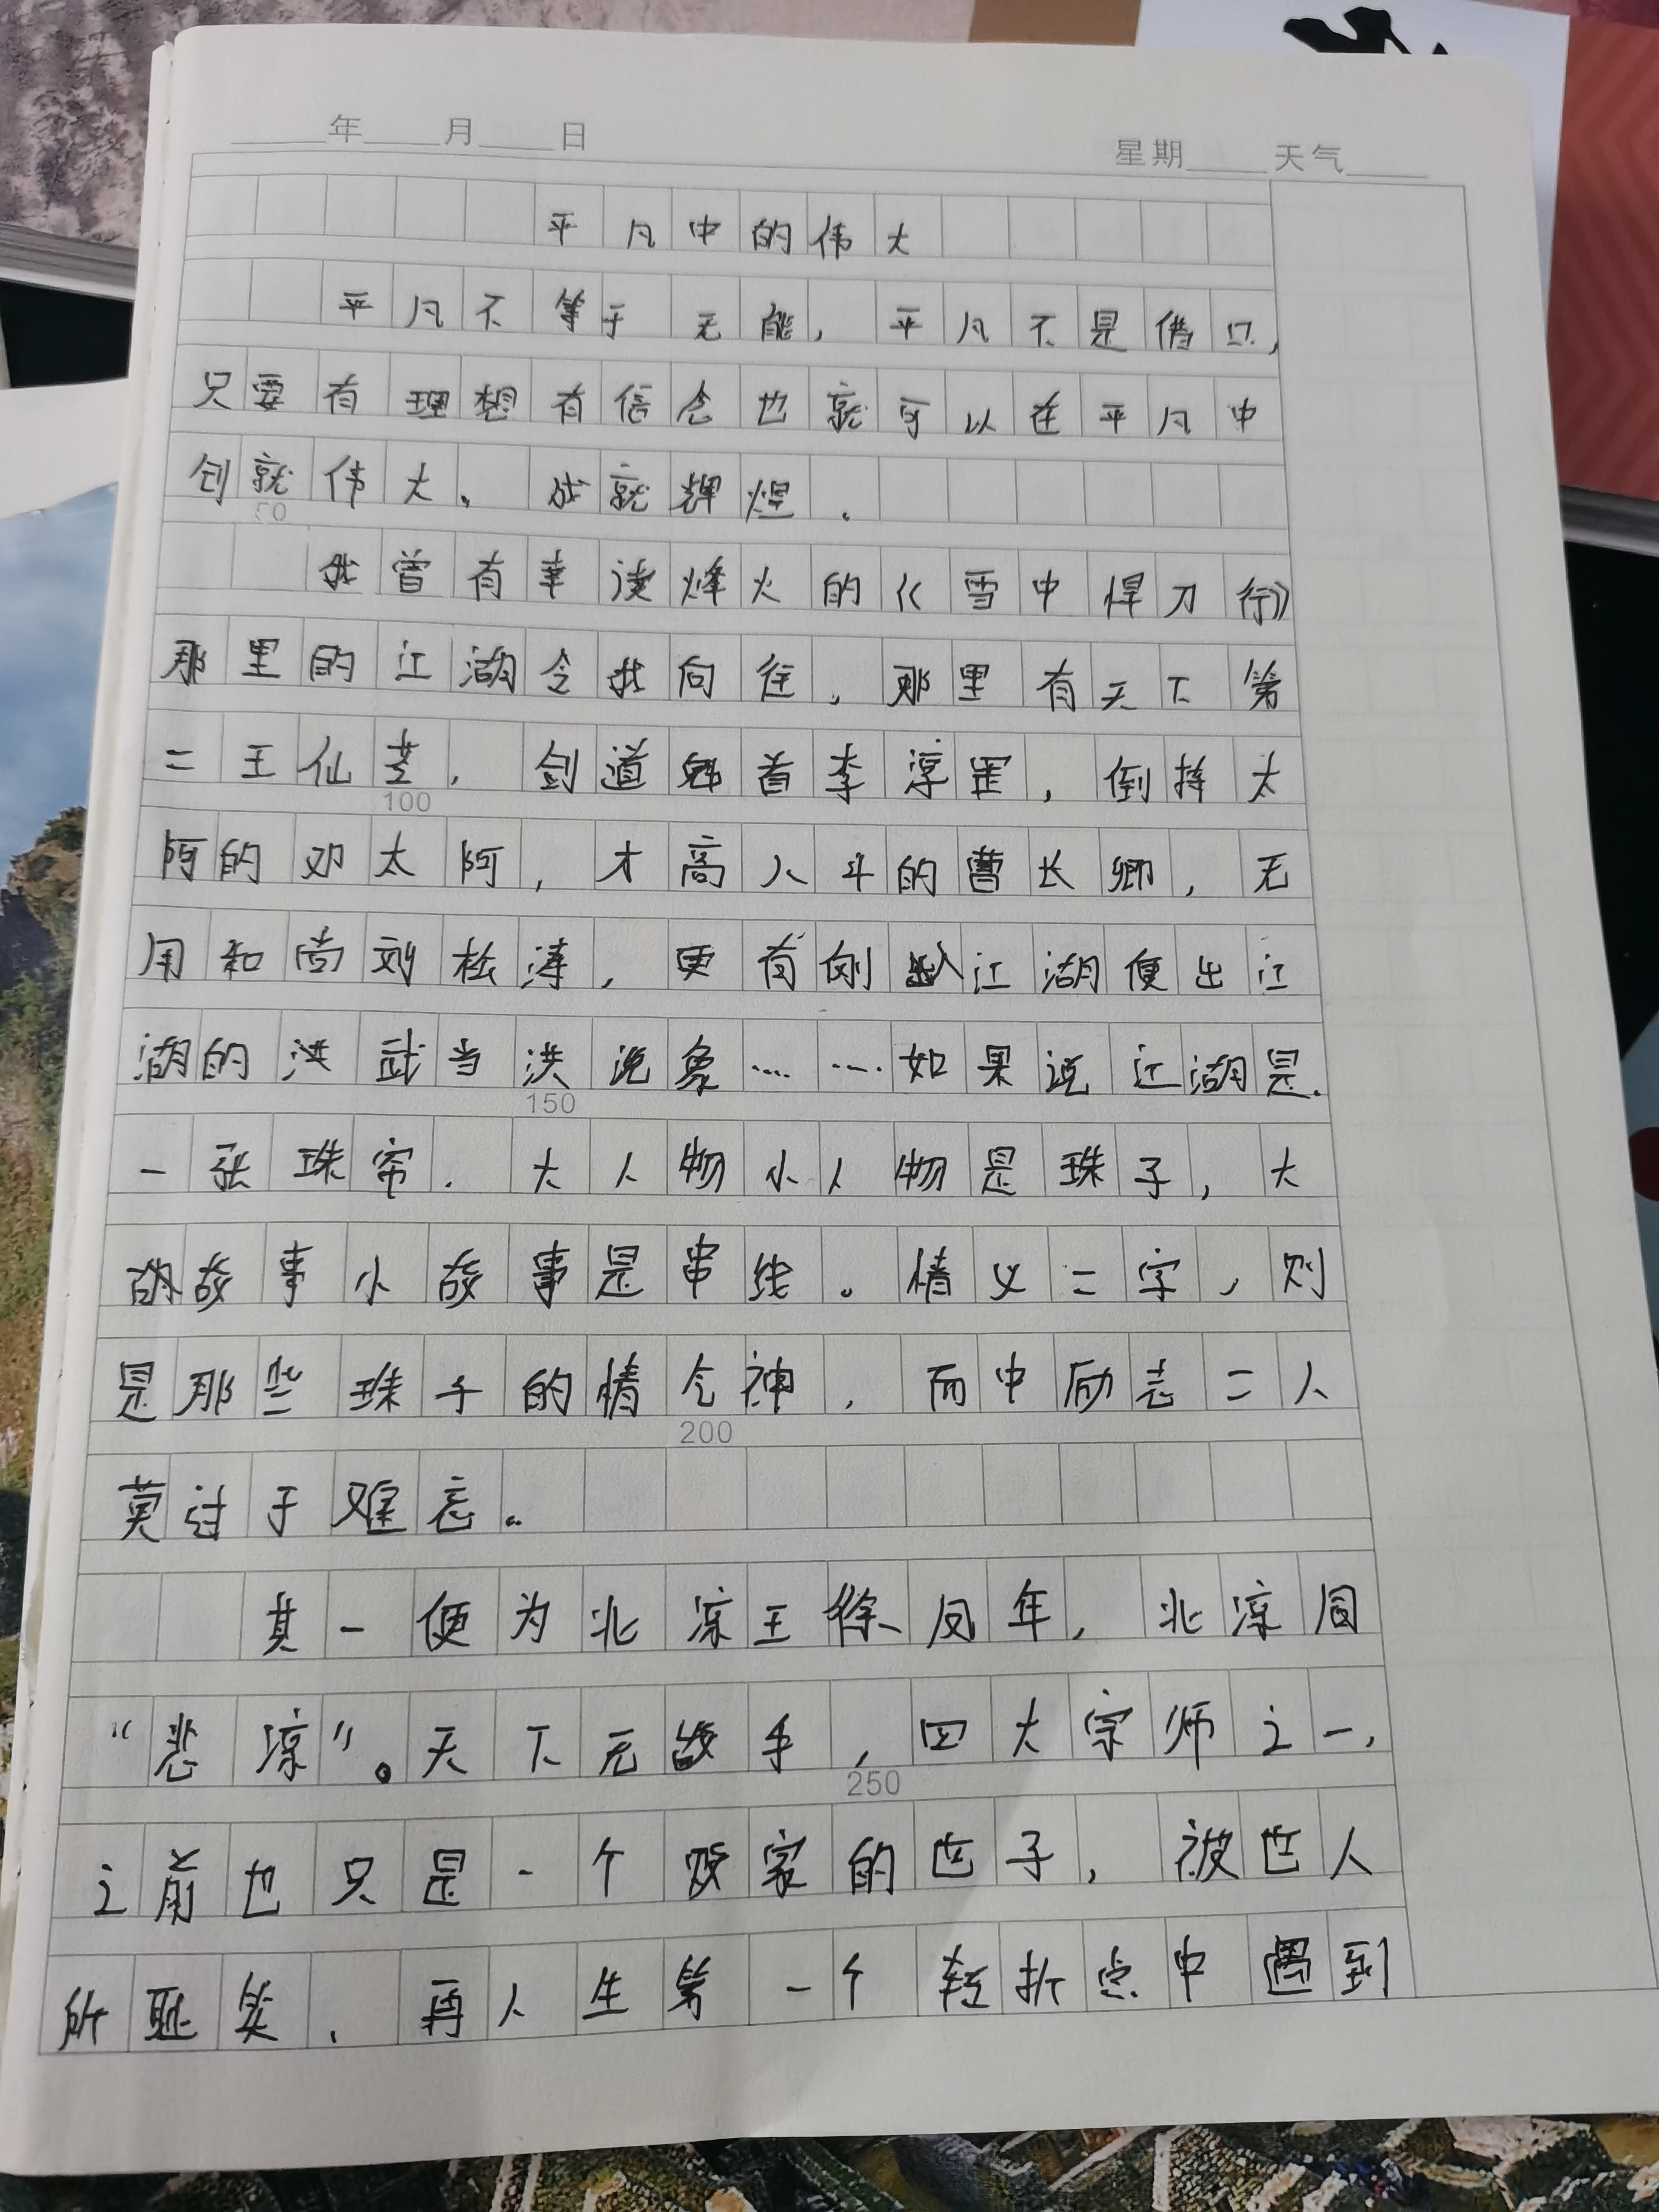 年 月 日 星期 天气
平凡中的伟大
平凡不等于无能，平凡不是借口，
只要有理想有信念也就可以在平凡中
创就伟大。成就辉煌.
50
我曾有幸读烽火的《雪中悍刀行》
那里的江湖令我向往，那里有天下第
二王仙芝，剑道魁首李淳罡，倒持太
100
阿的邓太阿，才高八斗的曹长卿，无
用和尚刘松涛，更有刚入江湖便出江
湖的洪武当洪说象……如果说江湖是.
150
一张珠帘.大人物小人物是珠子，大
的故事小故事是串线。情义二字，则
是那些珠子的情气神，而中励志二人
200
莫过于难忘。
其一便为北凉王徐凤年，北凉同
“悲凉”。天下无敌手，四大宗师之一，
250
之前也只是一个败家的世子，被世人
所耻笑，再人生第一个转折点中遇到